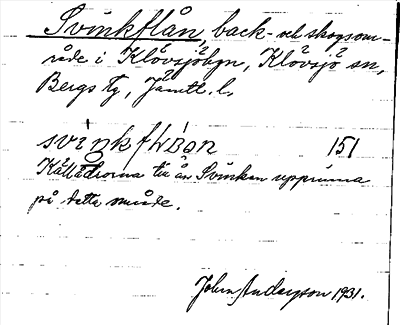 Svinkflån, back- och skogsom-
råde i Klövsjöbyn, Klövsjö sn,
Bergs tg, Jämtl. l.
svinkflån 151
Källådrorna till ån Svinkan upprinna
på detta område.
John Anderson 1931.